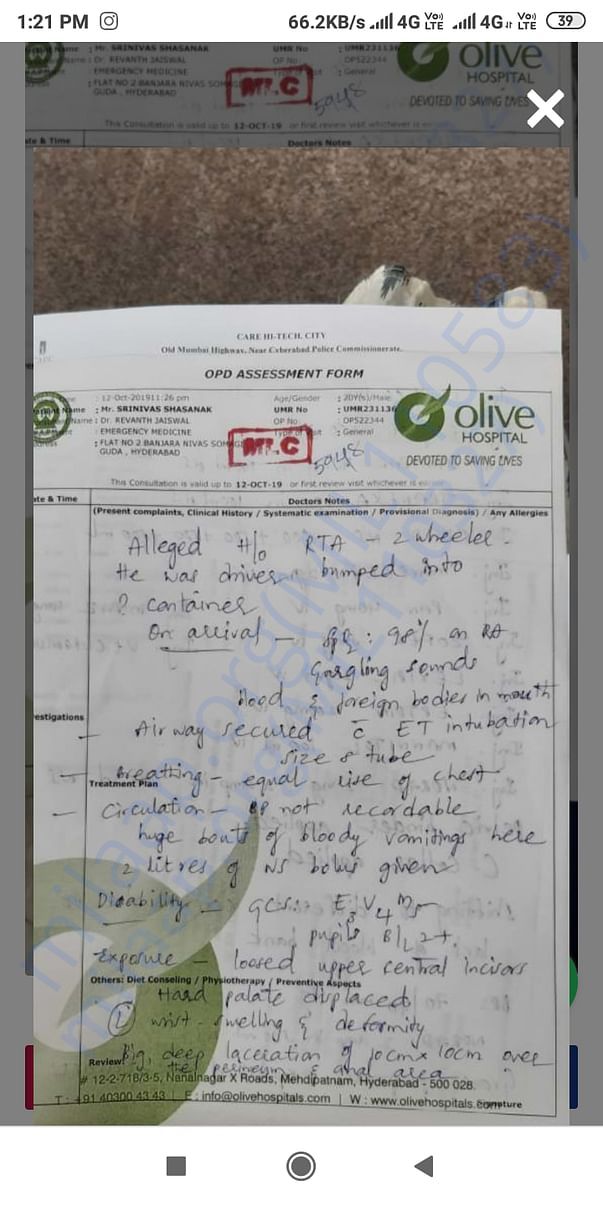 1:21 PM 66.2KB/s 4G Vo) LTE 4G Vo) LTE 39
Name : Mr. SRINIVAS SHASANAK UMR No : UMR231136
Name : Dr. REVANTH JAISWAL OP No : OPS22344
EMERGENCY MEDICINE : General
: FLAT NO 2 BANJARA NIVAS SOM
GUDA , HYDERABAD
MLC
5948
olive
HOSPITAL
DEVOTED TO SAVING LIVES
This Consultation is valid up to 12-OCT-19 or first review visit whichever is
te & Time Doctors Notes
CARE HI-TECH, CITY
Old Mumbai Highway, Near Cyberabad Police Commissionerate.
OPD ASSESSMENT FORM
: 12-Oct-201911:26 pm Age/Gender : 20Y(s)/Male
Name : Mr. SRINIVAS SHASANAK UMR No : UMR231136
Name : Dr. REVANTH JAISWAL OP No : OPS22344
: EMERGENCY MEDICINE : General
: FLAT NO 2 BANJARA NIVAS SOMAG
GUDA , HYDERABAD
MLC
5948
olive
HOSPITAL
DEVOTED TO SAVING LIVES
This Consultation is valid up to 12-OCT-19 or first review visit whichever is
te & Time Doctors Notes
(Present complaints, Clinical History / Systematic examination / Provisional Diagnosis) / Any Allergies
Alleged H/o RTA - 2 wheeler.
He was driver bumped into
? container
On arrival - SpO2 : 98% on RA
Gargling sounds
Blood & foreign bodies in mouth
vestigations
- Airway secured c̄ ET intubation
size 8 tube
- Breathing - equal rise of chest
Treatment Plan
- Circulation - BP not recordable
huge bouts of bloody vomitings here
2 litres of NS bolus given
Disability - GCS: E3 V4 M5
pupils B/L 2+.
Exposure - loosed upper central incisors
Others: Diet Conseling / Physiotherapy / Preventive Aspects
Hard palate displaced
(L) wrist - swelling & deformity
Big, deep laceration of 10cm x 10cm over
Review:
the perineum & anal area
# 12-2-718/3-5, Nanalnagar X Roads, Mehdipatnam, Hyderabad - 500 028.
T : +91 40300 43 43 | E : info@olivehospitals.com | W : www.olivehospitals.com